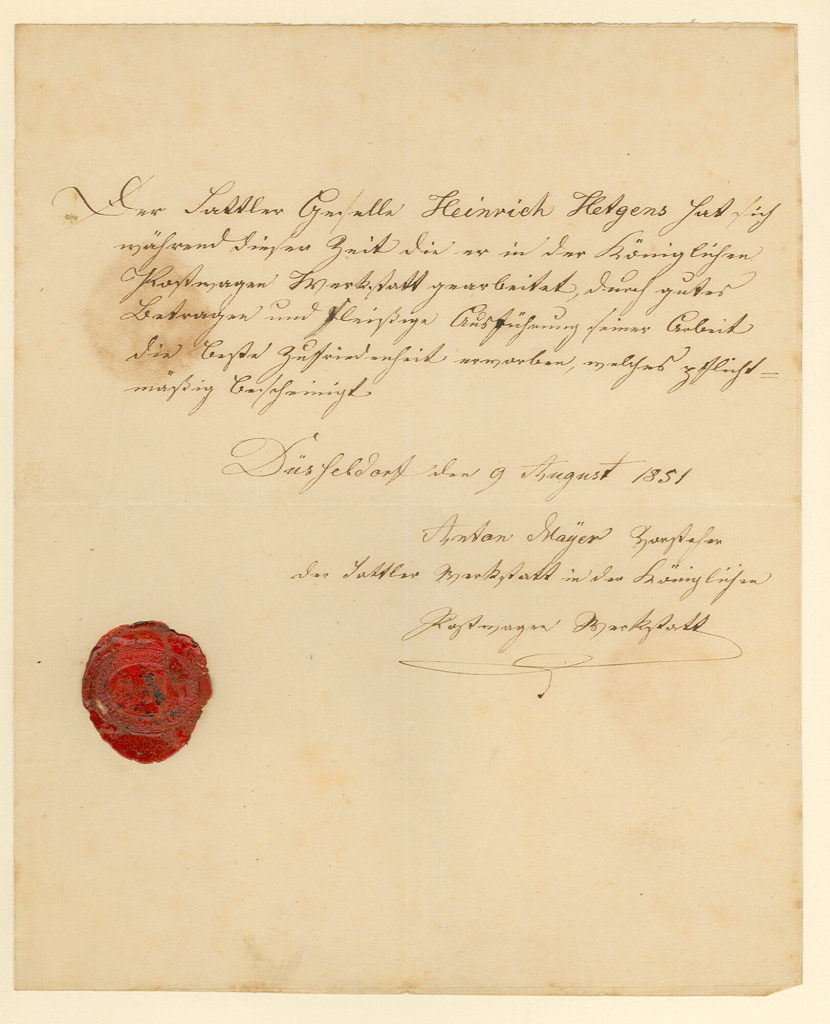 Der Sattler Geselle Heinrich Hetgens hat sich
während dieser Zeit die er in der Königlichen
Postwagen Werkstatt gearbeitet, durch gutes
Betragen und fleißige Ausführung seiner Arbeit
die beste Zufriedenheit erworben, welches pflicht=
mäßig bescheinigt
Düsseldorf den 9 August 1851
Anton Mayer Vorsteher
der Sattler Werkstatt in der Königlichen
Postwagen Werkstatt